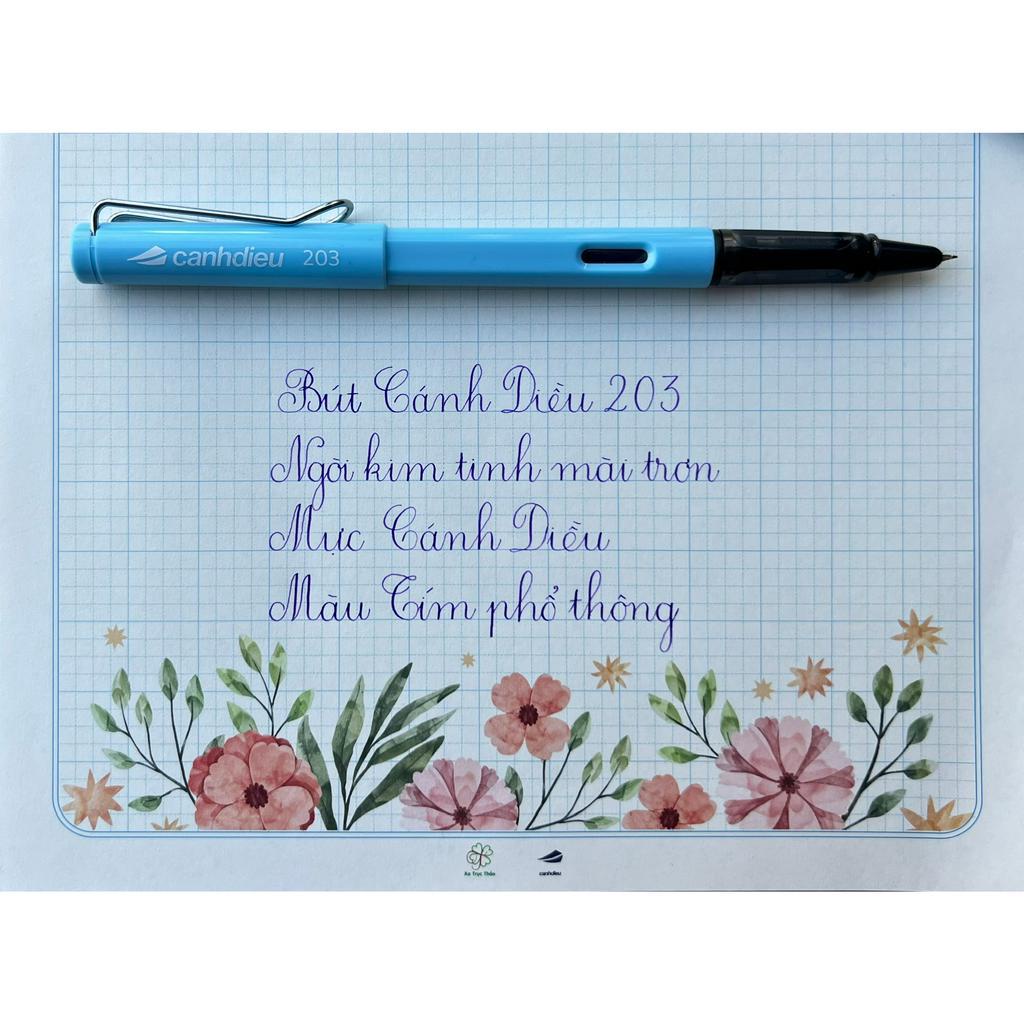 canhdieu 203
Bút Cánh Diều 203
Ngòi kim tinh mài trơn
Mực Cánh Diều
Màu Tím phổ thông
An Trục Thảo
canhdieu